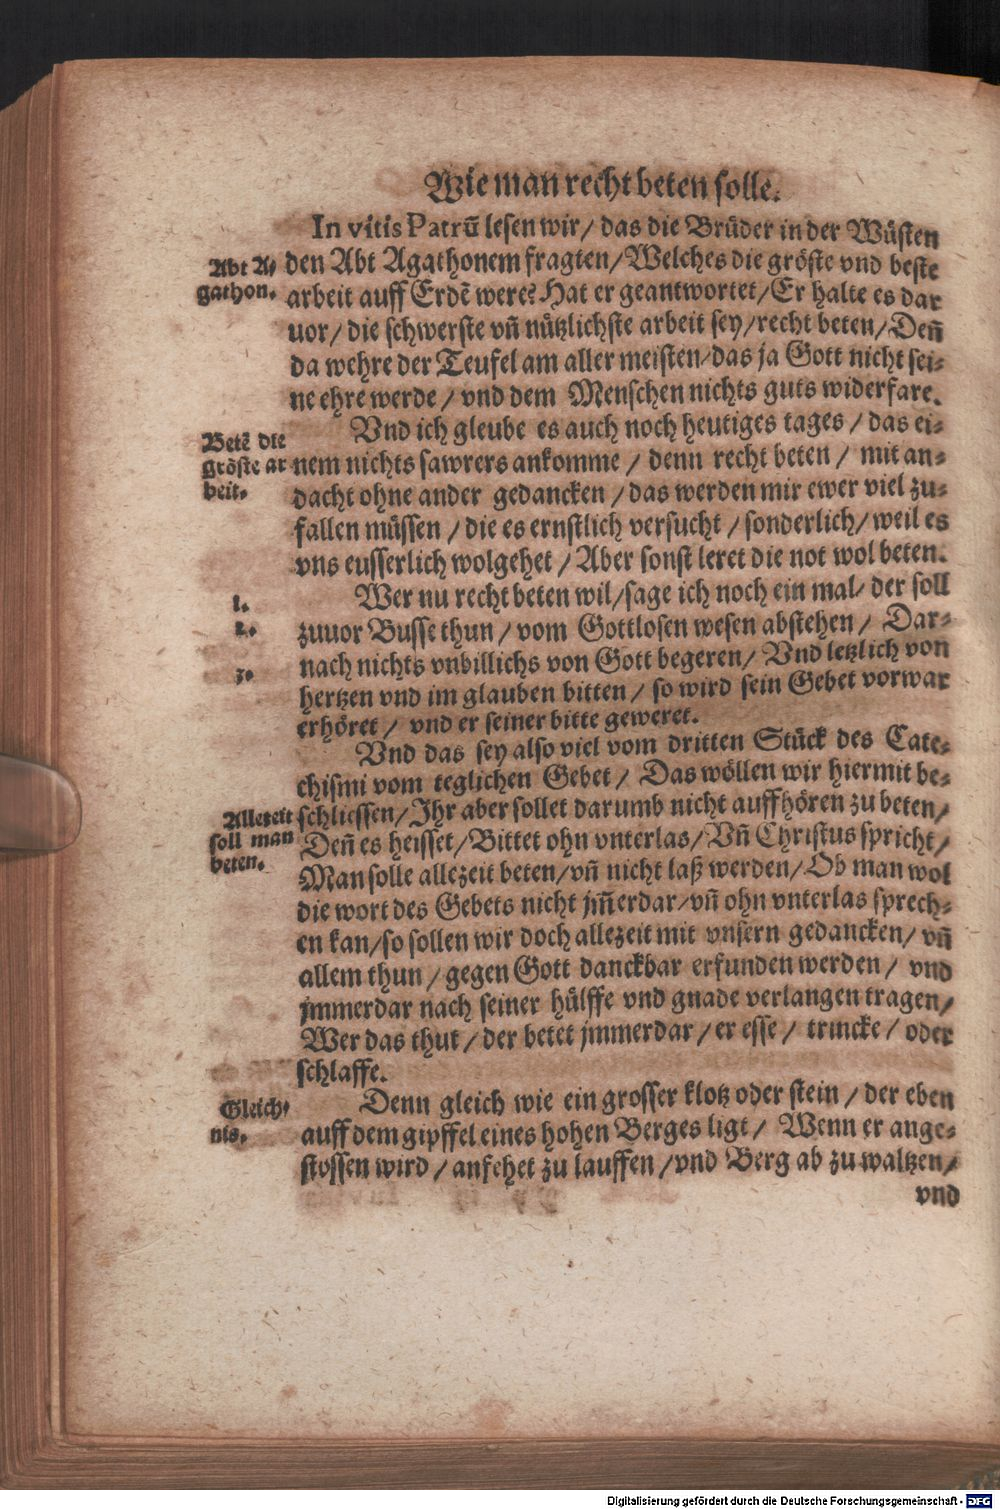 Wie man recht beten solle.
In vitis Patrũ lesen wir / das die Brüder in der Wüsten
Abt A-
gathon.
den Abt Agathonem fragten / Welches die gröste vnd beste
arbeit auff Erdẽ were? Hat er geantwortet / Er halte es dar
uor / die schwerste vñ nützlichste arbeit sey / recht beten / Deñ
da wehre der Teufel am aller meisten / das ja Gott nicht sei-
ne ehre werde / vnd dem Menschen nichts guts widerfare.
Vnd ich gleube es auch noch heutiges tages / das ei-
Betẽ die
gröste ar
beit.
nem nichts sawrers ankomme / denn recht beten / mit an-
dacht ohne ander gedancken / das werden mir ewer viel zu-
fallen müssen / die es ernstlich versucht / sonderlich / weil es
vns eusserlich wolgehet / Aber sonst leret die not wol beten.
Wer nu recht beten wil / sage ich noch ein mal / der soll
1.
2.
zuuor Busse thun / vom Gottlosen wesen abstehen / Dar-
nach nichts vnbillichs von Gott begeren / Vnd letzlich von
3.
hertzen vnd im glauben bitten / so wird sein Gebet vorwar
erhöret / vnd er seiner bitte geweret.
Vnd das sey also viel vom dritten Stück des Cate-
chismi vom teglichen Gebet / Das wöllen wir hiermit be-
Allezeit
soll man
beten.
schliessen / Ihr aber sollet darumb nicht auffhören zu beten /
Deñ es heisset / Bittet ohn vnterlas / Vñ Christus spricht /
Man solle allezeit beten / vñ nicht laß werden / Ob man wol
die wort des Gebets nicht jm̃erdar / vñ ohn vnterlas sprech-
en kan / so sollen wir doch allezeit mit vnsern gedancken / vñ
allem thun / gegen Gott danckbar erfunden werden / vnd
jmmerdar nach seiner hülffe vnd gnade verlangen tragen /
Wer das thut / der betet jmmerdar / er esse / trincke / oder
schlaffe.
Gleich-
nis.
Denn gleich wie ein grosser klotz oder stein / der eben
auff dem gipffel eines hohen Berges ligt / Wenn er ange-
stossen wird / anfehet zu lauffen / vnd Berg ab zu waltzen /
vnd
Digitalisierung gefördert durch die Deutsche Forschungsgemeinschaft - DFG